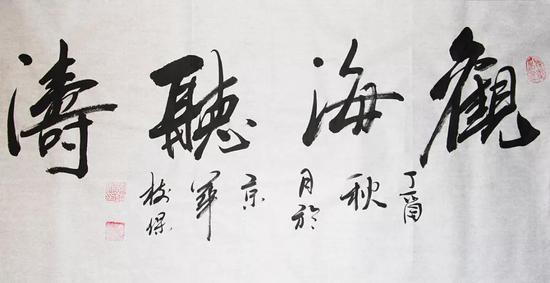 觀海聽濤
丁酉
秋
月於
京
保